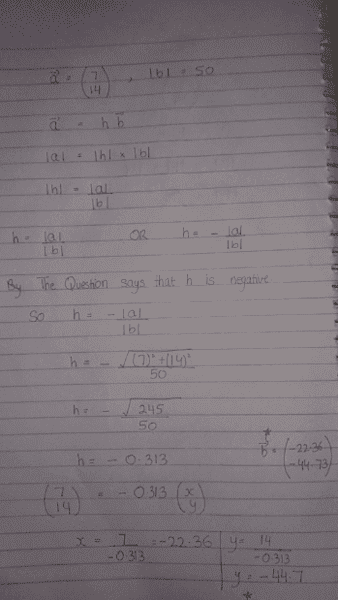 a⃗ = (7 14) , |b| = 50
a⃗ = h b⃗
|a| = |h| × |b|
|h| = |a| / |b|
h = |a| / |b| OR h = - |a| / |b|
By The Question says that h is negative
So h = - |a| / |b|
h = - √(7)² + (14)² / 50
h = - √245 / 50
h = - 0.313
* b⃗ = (-22.36 -44.73)
(7 14) = - 0.313 (x y)
x = 7 / -0.313 = -22.36
y = 14 / -0.313
y = -44.7
*